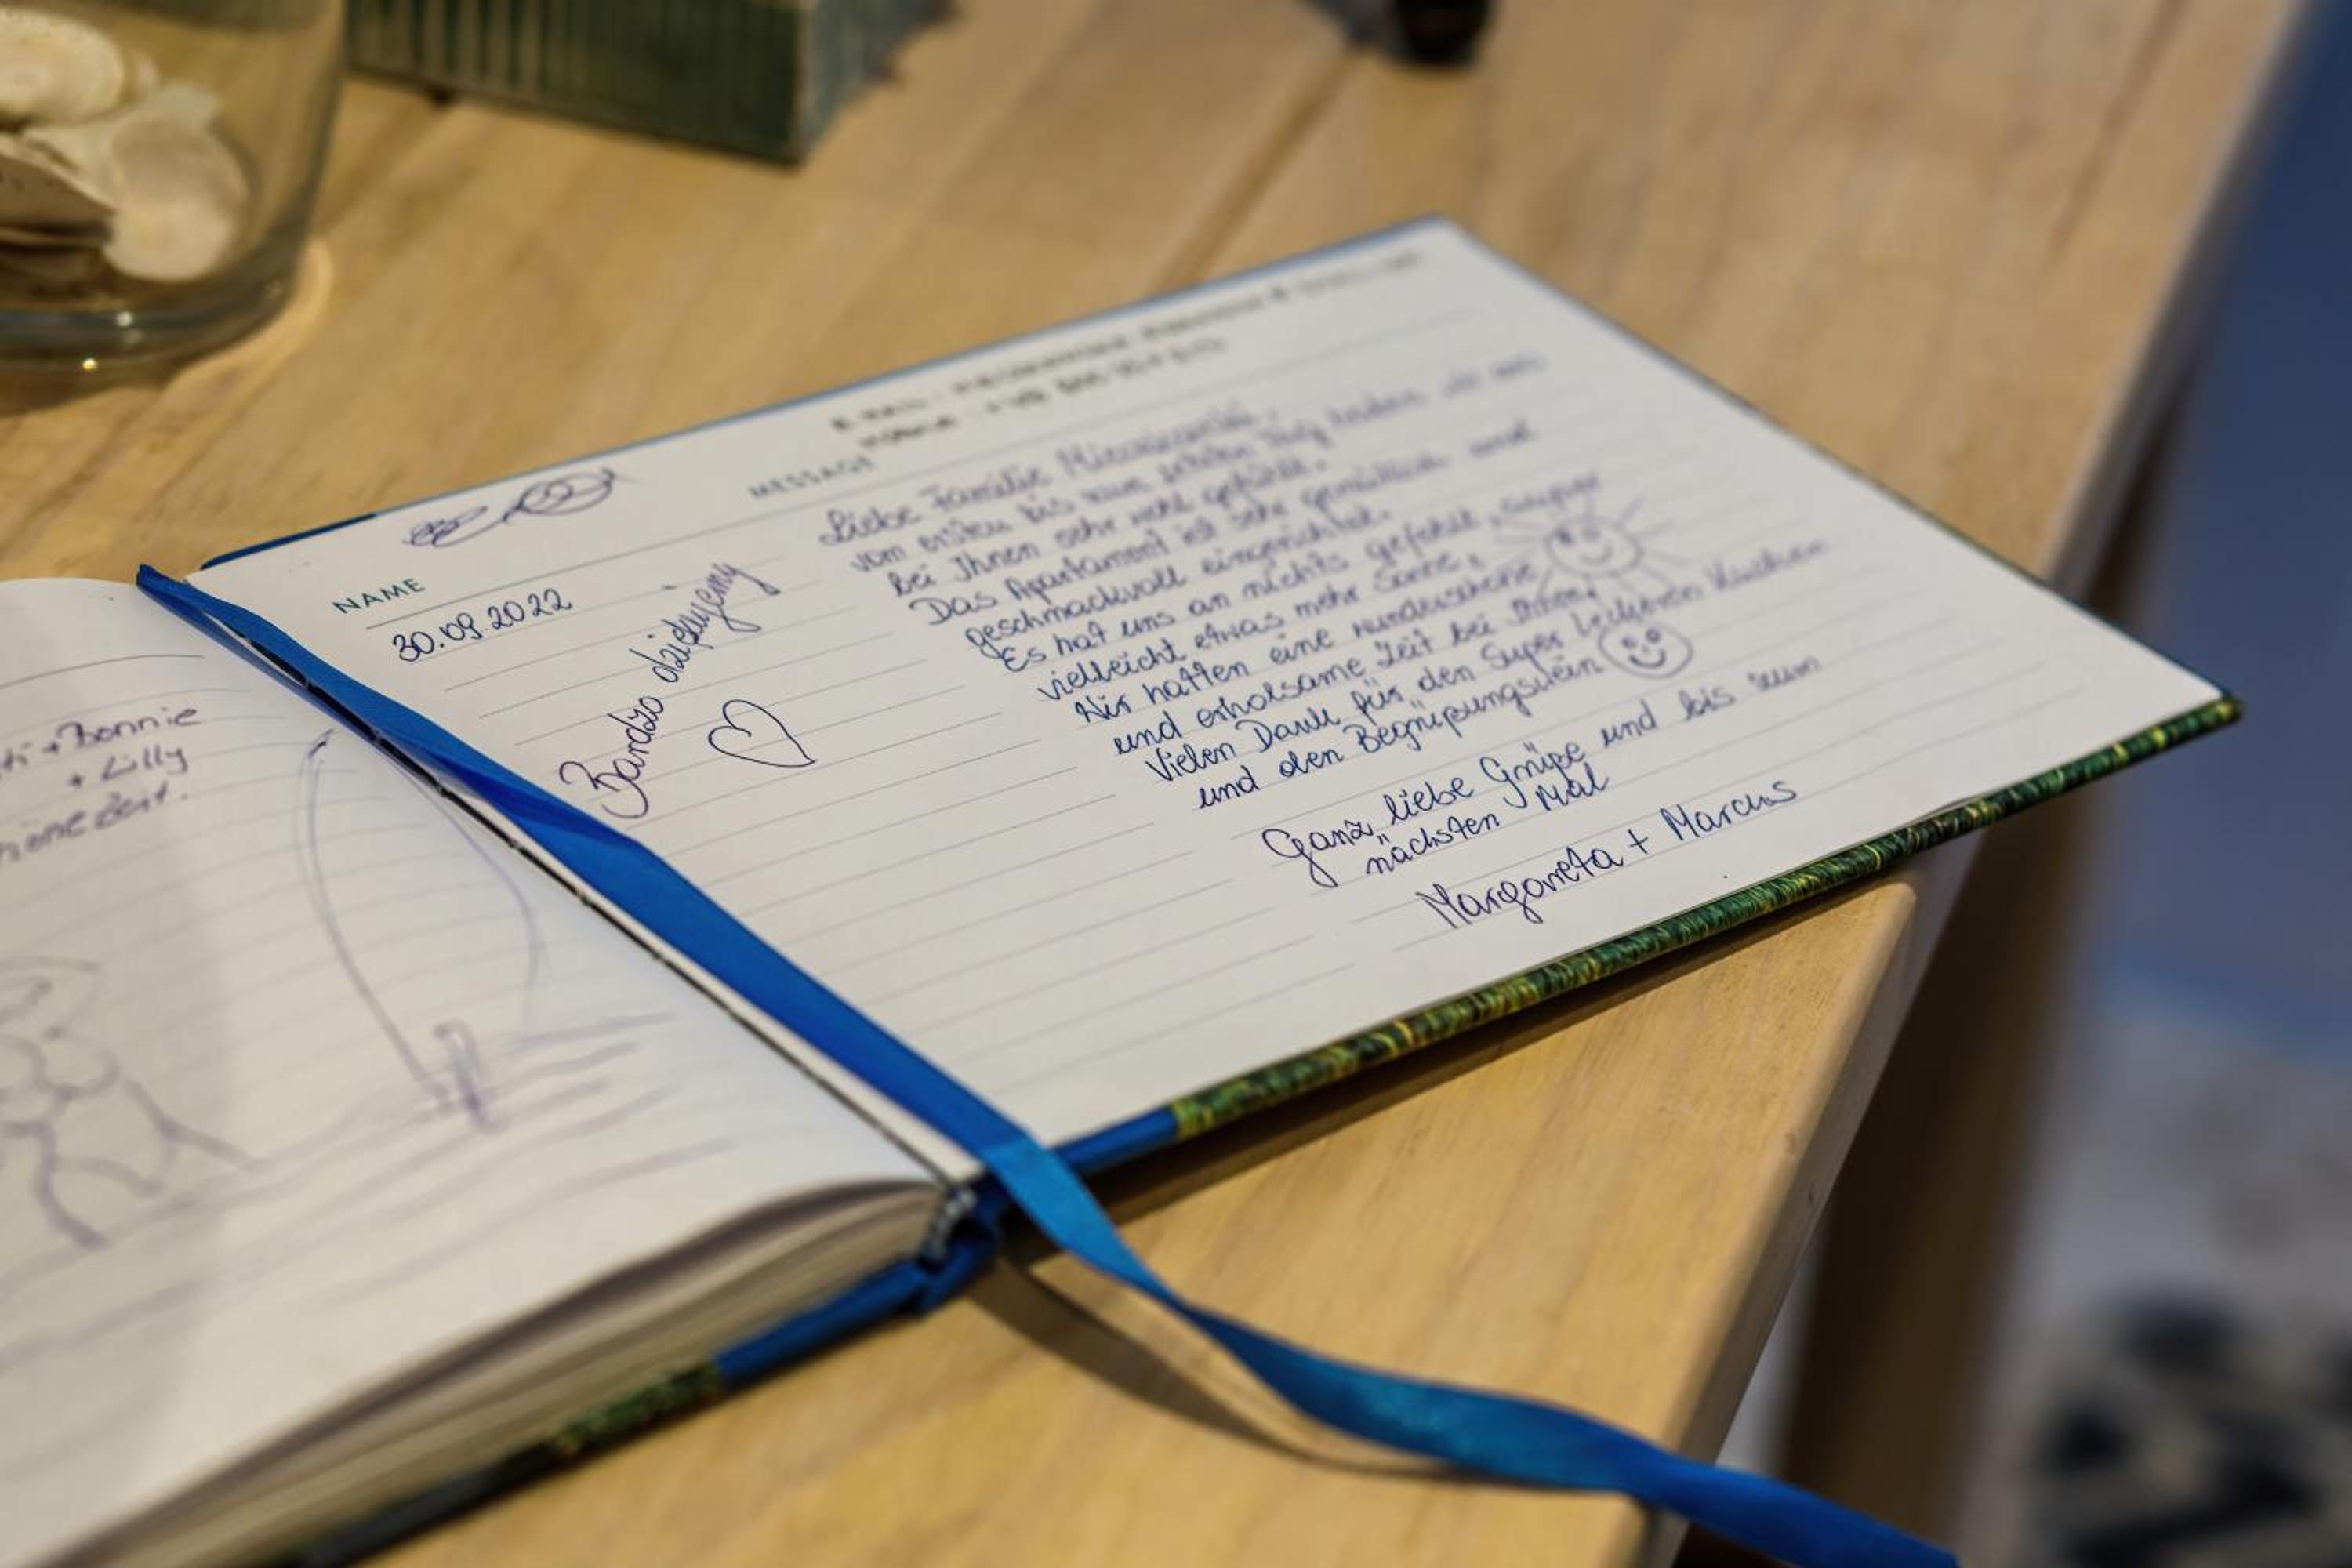 + Bonnie
+ Lilly
Zeit.
NAME
30.09.2022
Bardzo dziękujemy
MESSAGE
Liebe Familie
vom ersten bis zum letzten Tag haben wir uns
bei Ihnen sehr wohl gefühlt.
Das Apartament ist sehr gemütlich und
geschmackvoll eingerichtet.
Es hat uns an nichts gefehlt, außer
vielleicht etwas mehr Sonne.
Wir hatten eine wunderschöne
und erholsame Zeit bei Ihnen.
Vielen Dank für den Super leckeren Kuchen
und den Begrüßungswein
Ganz liebe Grüße und bis zum
nächsten Mal
Margareta + Marcus